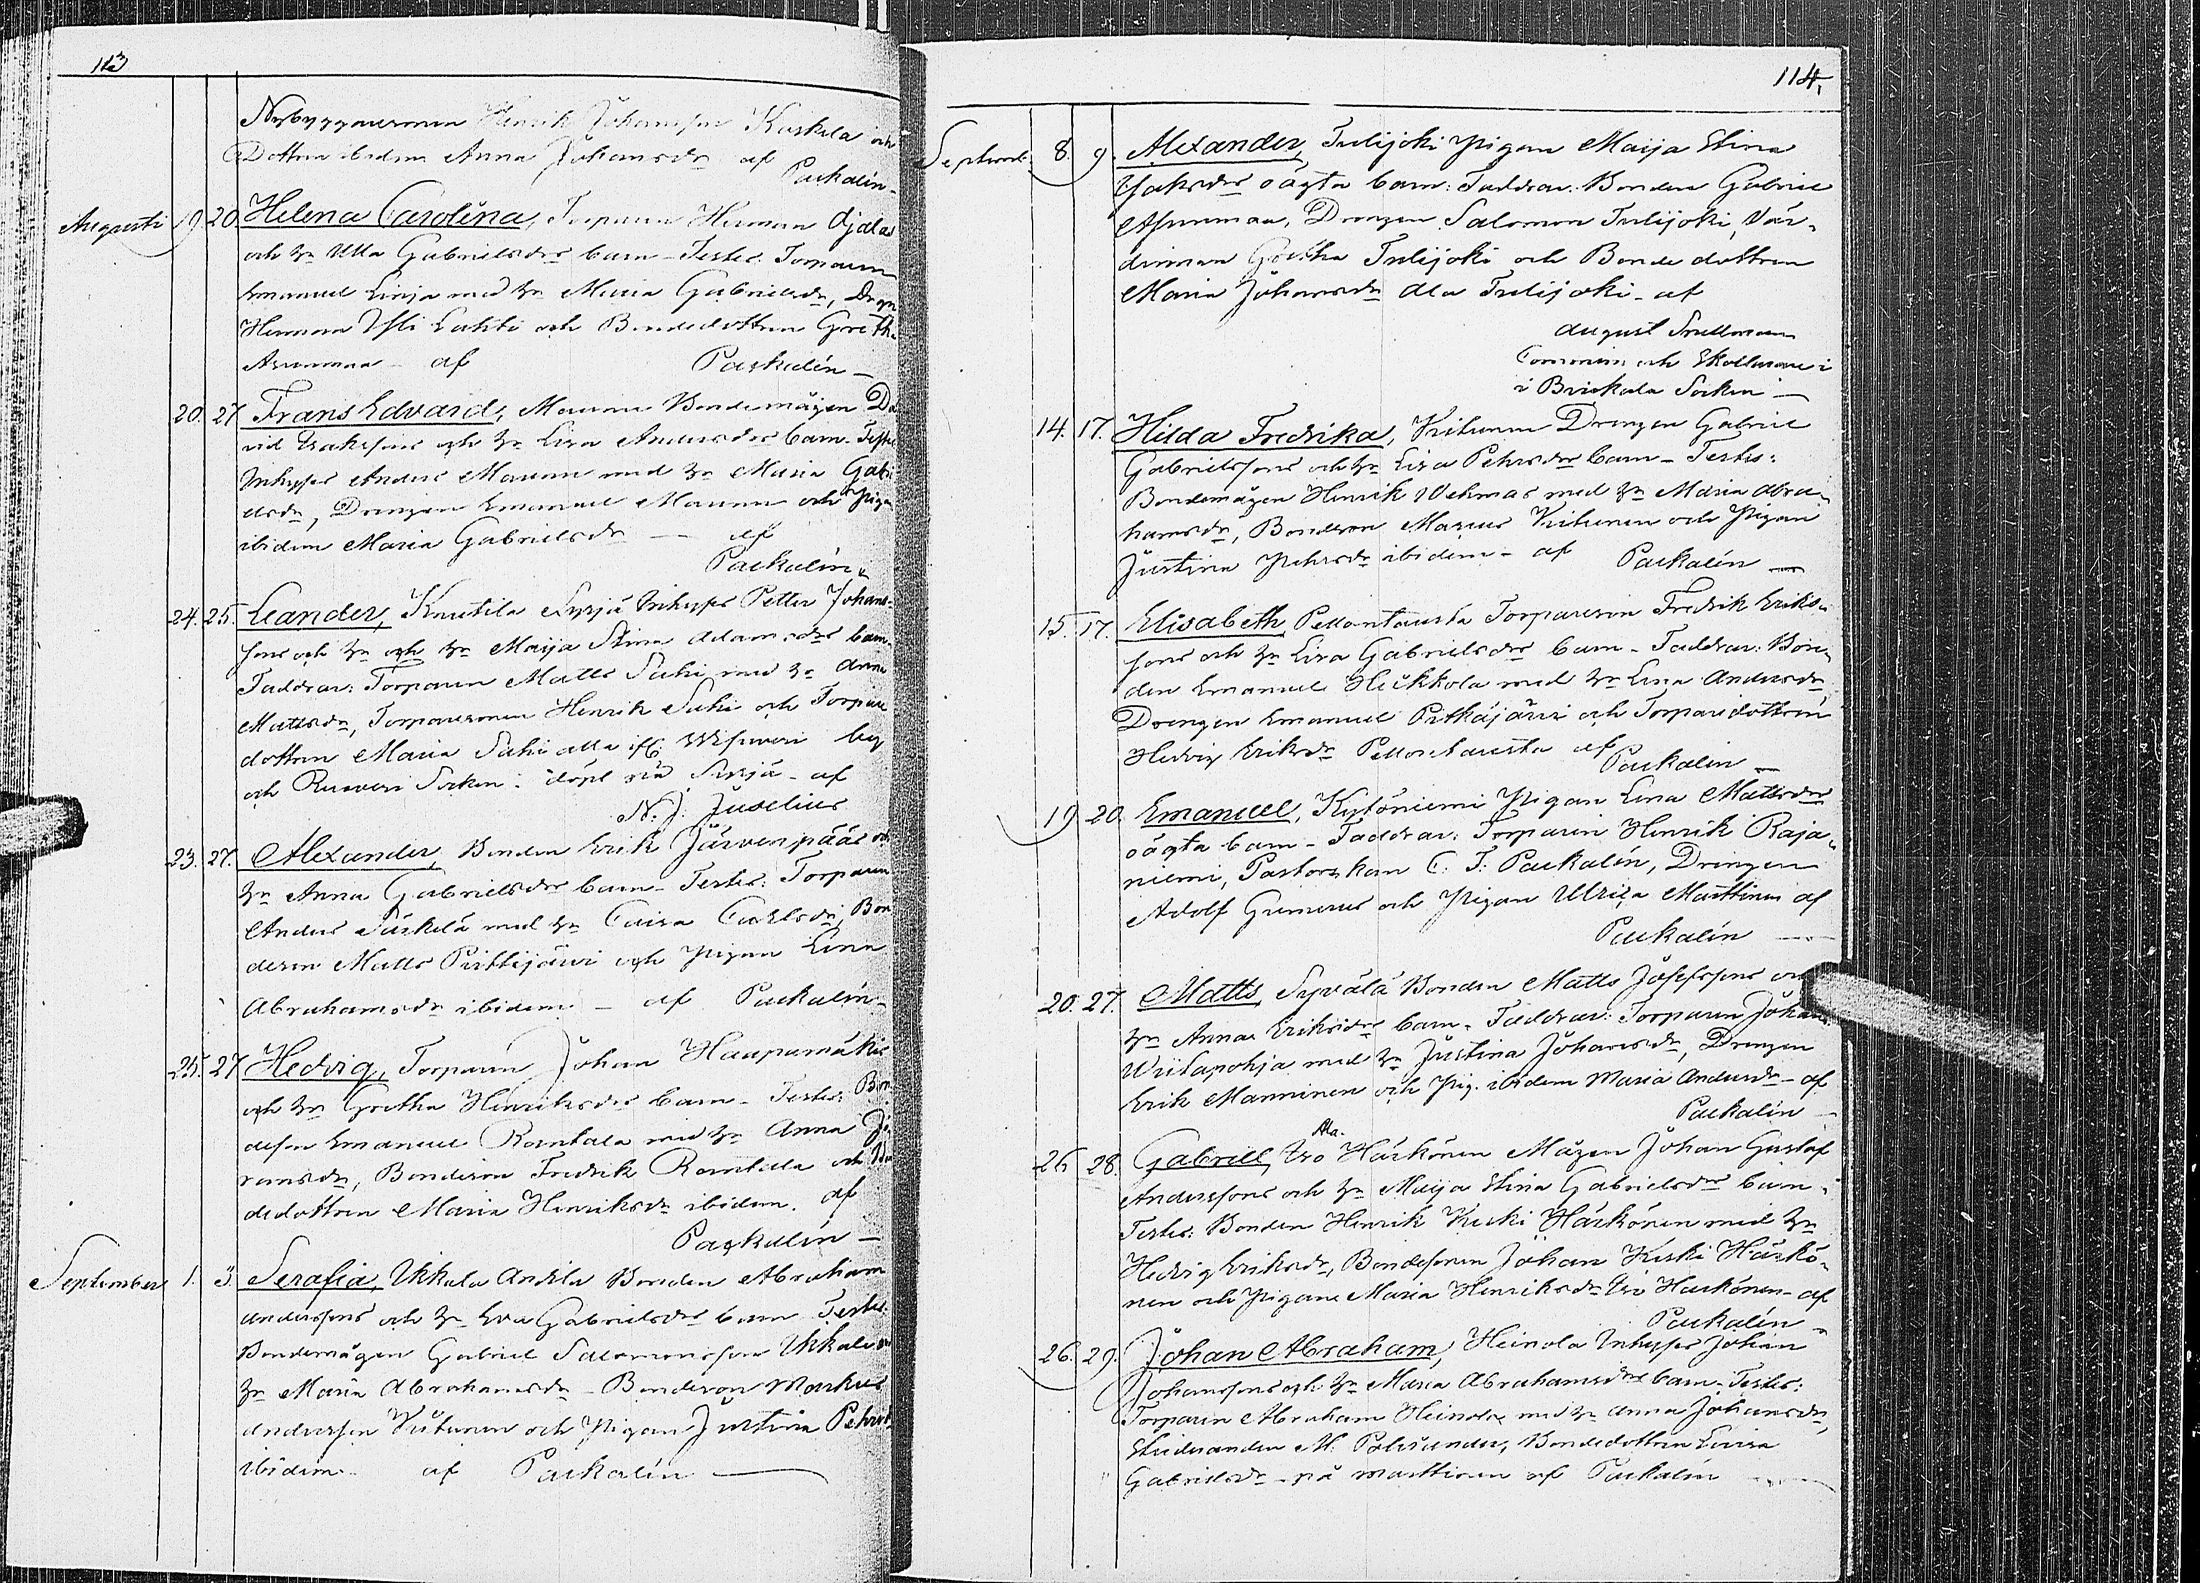 113
Nybyggaresonen Henrik Johansson Kuskela och
Dottren ibidem Anna Johansdr af
Paukalin
Augusti 19 20 Helena Carolina, Torparen Herman Ojalas
och hu Ulla Gabrielsdrs barn - Testes: Torparen
Emanuel Linja med hu Maria Gabrielsdr, Dreng
Herman Yli Lahti och Bondedottren Greth
Assunmaa af Paukalin
20. 27 Frans Edvard, Maunu Bondemågen Da
vid Isakssons och hu Lisa Andersdrs barn - Testes
Inhyses Anders Maunu med hu Maria Gabri
elsdr, Drengen Emanuel Maunu och Pigan
ibidem Maria Gabrielsdr af
Paukalin
24. 25. Leander, Knuutila Syrjä Inhyses Petter Johans-
sons och hu och hu Maija Stina Adamsdrs barn
Faddrar: Torparen Matts Suki med hu Anna
Mattsdr, Torparesonen Henrik Suki och Torpare
dottren Maria Suki alla ifr. by
och Ruovesi Socken. döpt på Syrjä af
N. J. Juselius
23. 27. Alexander, Bonden Erik Järvenpääs och
hu Anna Gabrielsdrs barn - Testes: Torparen
Anders med hu Caisa Carlsdr, Bon
deson Matts Pittijärvi och Pigan Lena
Abrahamsdr ibidem - af Paukalin
25. 27 Hedvig, Torparen Johan Haapamäkis
och hu Gretha Henriksdrs barn - Testes: Bon
deson Emanuel Rantala med hu Anna Je
remsdr, Bondeson Fredrik Rantala och Bon
dedottren Maria Henriksdr ibidem. af
Paukalin
September 1. 3 Serafia, Ukkola Anttila Bonden Abraham
Anderssons och hu Eva Gabrielsdrs barn Testes:
Bondemågen Gabriel Salomonsson Ukkola och
hu Maria Abrahamsdr - Bondeson Markus
Andersson Viitunen och Pigan Justina Pehrsdr
ibidem - af Paukalin
114.
Septemb. 8. 9. Alexander, Tulijoki Pigan Maija Stina
Jaksdrs oägta barn: Faddrar: Bonden Gabriel
Assunmaa, Drengen Salomon Tulijoki, Vär-
dinnan Gretha Tulijoki och Bonde dottren
Maria Johansdr Ala Tulijoki - af
August Snellman
Comminis: och Skollärare i
i Birkala Socken
14. 17. Hilda Fredrika, Viitunen Drengen Gabriel
Gabrielssons och hu Lisa Pehrsdrs barn - Testes:
Bondemågen Henrik Wehmas med hu Maria Abra-
hamsdr, Bondeson Marcus Viitunen och Pigan
Justina Pehrsdr ibidem - af Paukalin
15. 17. Elisabeth, Pellontausta Torpareson Fredrik Eriks-
sons och hu Lisa Gabrielsdrs barn - Faddrar: Bon-
den Emanuel Heikkola med hu Lena Andersdr
Drengen Emanuel Pitkäjärvi och Torparedottren
Hedvig Eriksdr Pellontausta af
Paukalin
19 20. Emanuel, Kytöniemi Pigan Lena Mattsdrs
oägta barn - Faddrar: Torparen Henrik Raja-
niemi, Pastorskan C. F. Paukalin, Drengen
Adolf Grunerus och Pigan Ulrica Marttinen af
Paukalin
20. 27. Matts, Syvälä Bonden Matts Josefssons och
hu Anna Eriksdrs barn - Faddrar: Torparen Johan
Wiitapohja med hu Justina Johansdr, Drengen
Erik Manninen och Pig. ibidem Maria Andersdr - af
Paukalin
Ala.
26 28. Gabriel, Iso Härkönen Mågen Johan Gustaf
Anderssons och hu Maija Stina Gabrielsdrs barn -
Testes: Bonden Henrik Keski Härkönen med hu
Hedvig Eriksdr, Bondesonen Johan Keski Härkö-
nen och Pigan Maria Henriksdr Iso Härkönen - af
Paukalin
26. 29. Johan Abraham, Heinola Inhyses Johan
Johanssons och hu Maria Abrahamsdrs barn - Testes:
Torparen Abraham Heinola med hu Anna Johansdr,
Studeranden M. Polviander, Bondedottren Lovisa
Gabrielsdr - på Marttinen af Paukalin